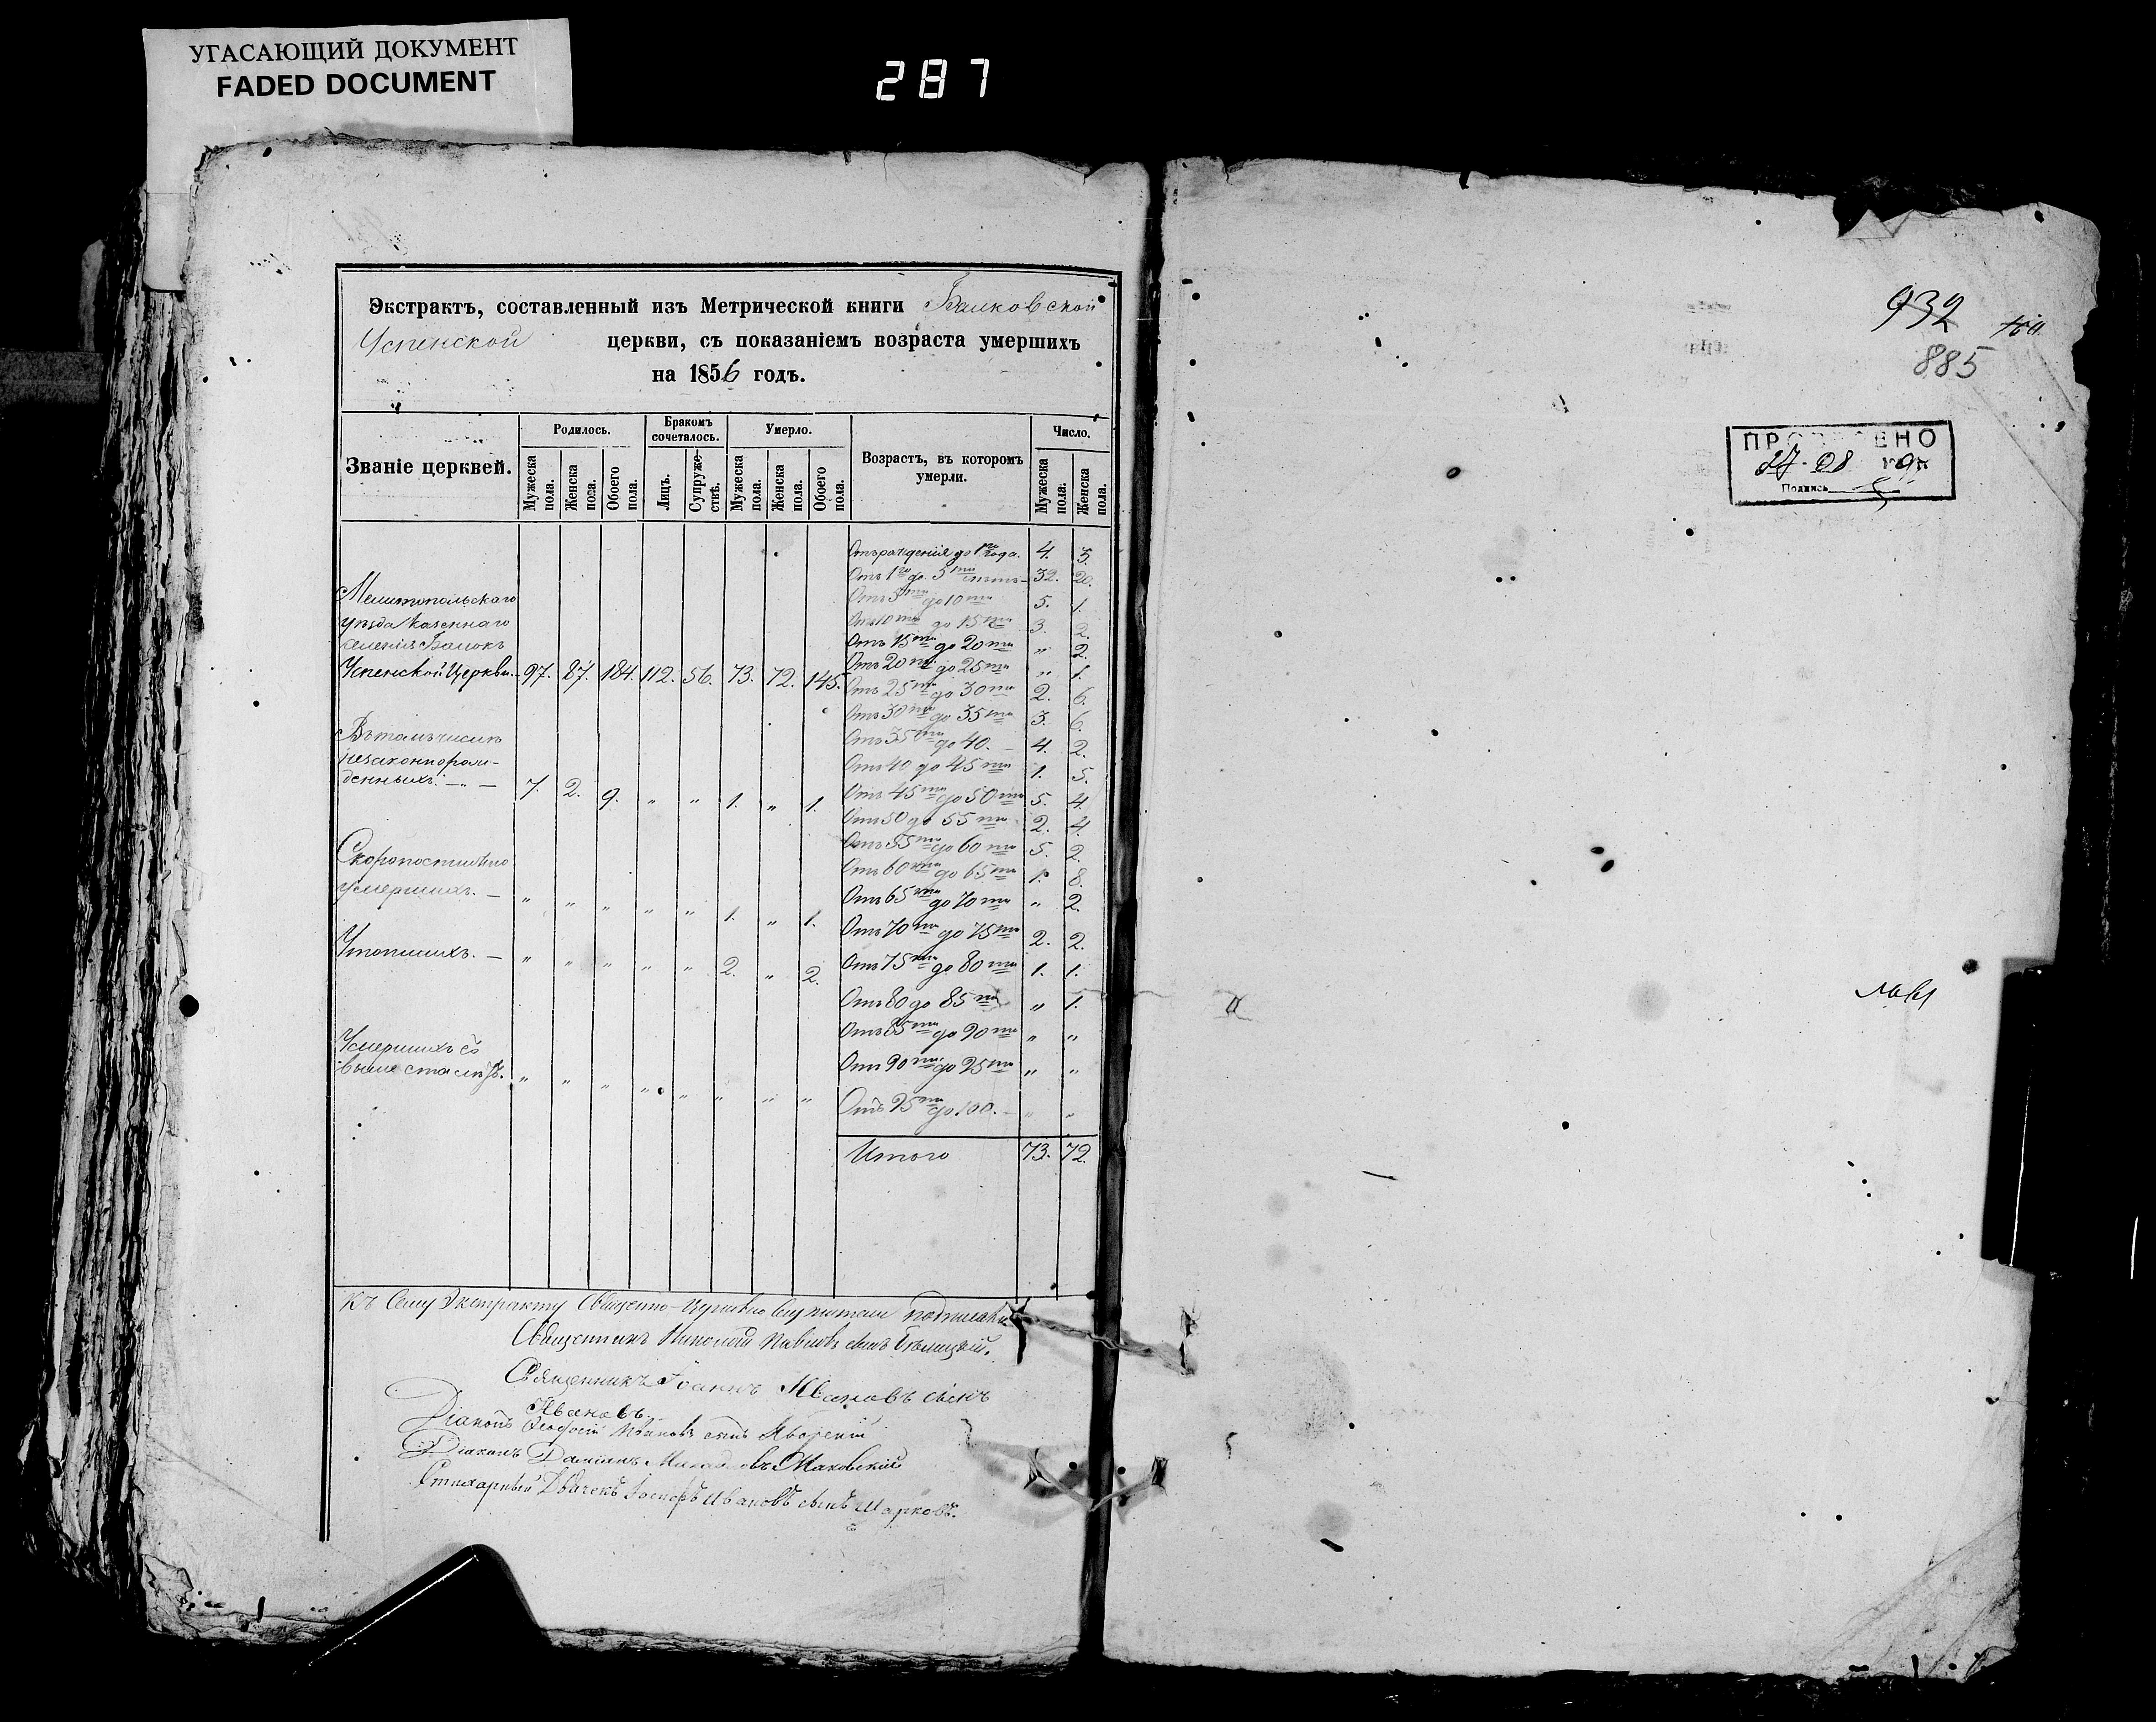 УГАСАЮЩИЙ ДОКУМЕНТ
FADED DOCUMENT
287
Экстрактъ, составленный изъ Метрической книги Балковской
Успенской церкви, съ показаніемъ возраста умершихъ
на 1856 годъ.
Званіе церквей. Родилось. Бракомъ сочеталось. Умерло. Возрастъ, въ которомъ умерли. Число.
Мужеска пола. Женска пола. Обоего пола. Лицъ. Супружествъ. Мужеска пола. Женска пола. Обоего пола. Мужеска пола. Женска пола.
Мелитопольскаго
уѣзда казеннаго
селенія Балокъ
Успенской Церкви. 97. 87. 184. 112. 56. 73. 72. 145.
Въ томъ числѣ
незаконнорож-
денныхъ. — „ — 7. 2. 9. „ „ 1. „ 1.
Скоропостижно
умершихъ. — „ „ „ „ „ 1. „ 1.
Утопшихъ. — „ „ „ „ „ 2. „ 2.
Умершихъ съ
выше ста лѣтъ. „ „ „ „ „ „ „ „
Отъ рожденія до 1го года. 4. 3.
Отъ 1го до 5ти лѣтъ 32. 20.
Отъ 5ти до 10ти 5. 1.
Отъ 10ти до 15ти 3. 2.
Отъ 15ти до 20ти „ 2.
Отъ 20ти до 25ти „ 1.
Отъ 25ти до 30ти 2. 6.
Отъ 30ти до 35ти 3. 6.
Отъ 35ти до 40. — 4. 2.
Отъ 40 до 45ти 1. 5.
Отъ 45ти до 50ти 5. 4.
Отъ 50 до 55ти 2. 4.
Отъ 55ти до 60ти 5. 2.
Отъ 60ти до 65ти 1. 8.
Отъ 65ти до 70ти „ 2.
Отъ 70ти до 75ти 2. 2.
Отъ 75ти до 80ти 1. 1.
Отъ 80 до 85ти „ 1.
Отъ 85ти до 90ти „ „
Отъ 90ти до 95ти „ „
Отъ 95ти до 100. — „ „
Итого 73. 72.
Къ сему Экстракту Священно-церковно служители подписались
Священникъ Николай Павловъ сынъ
Священникъ Іоаннъ Ивановъ сынъ
Ивановъ.
Діаконъ Ѳеодосій Ивановъ сынъ Яворскій
Діаконъ Даміанъ Маковскій
Стихарный Дьячекъ Ивановъ сынъ Марковъ.
932
885
ПРОВЕРЕНО
27. 08
Подпись